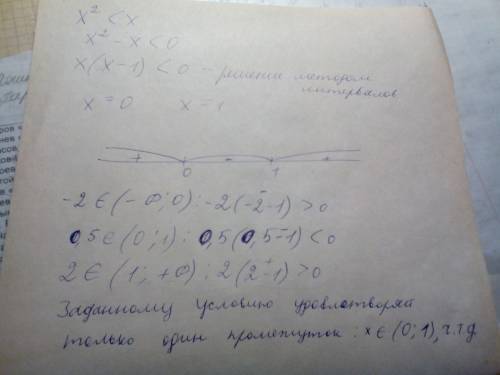 x² < x
x² - x < 0
x(x-1) < 0 - решение методом
интервалов
x = 0 x = 1
+ - +
0 1
-2 ∈ (-∞; 0) : -2(-2-1) > 0
0,5 ∈ (0; 1) : 0,5(0,5-1) < 0
2 ∈ (1; +∞) : 2(2-1) > 0
Заданному условию удовлетворяй
только один промежуток : x ∈ (0; 1), ч.т.д